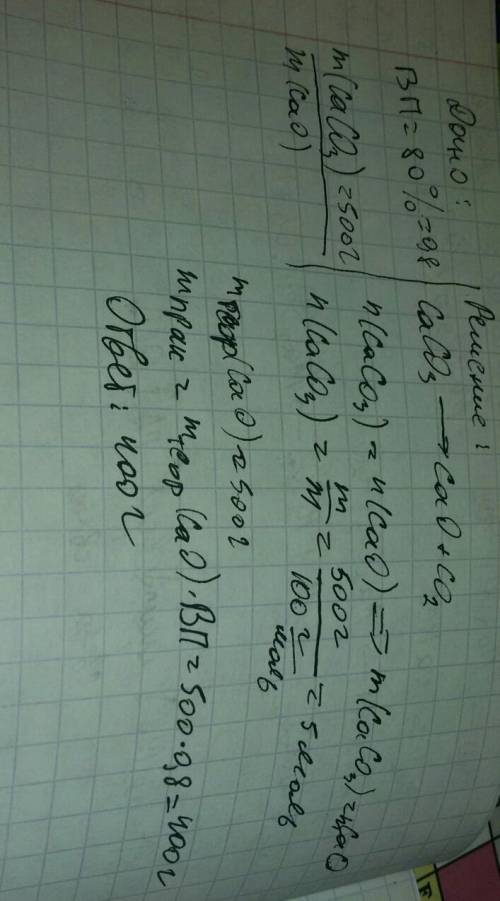 Дано:
ВП = 80% = 0,8
m(CaCO₃) = 500г
m(CaO)
Решение:
CaCO₃ → CaO + CO₂
n(CaCO₃) = n(CaO) ⇒ m(CaCO₃) = CaO
n(CaCO₃) = m/M = 500г/100 г/моль = 5 моль
mтеор(CaO) = 500г
mпрак = mтеор(CaO) · ВП = 500 · 0,8 = 400г
Ответ: 400г